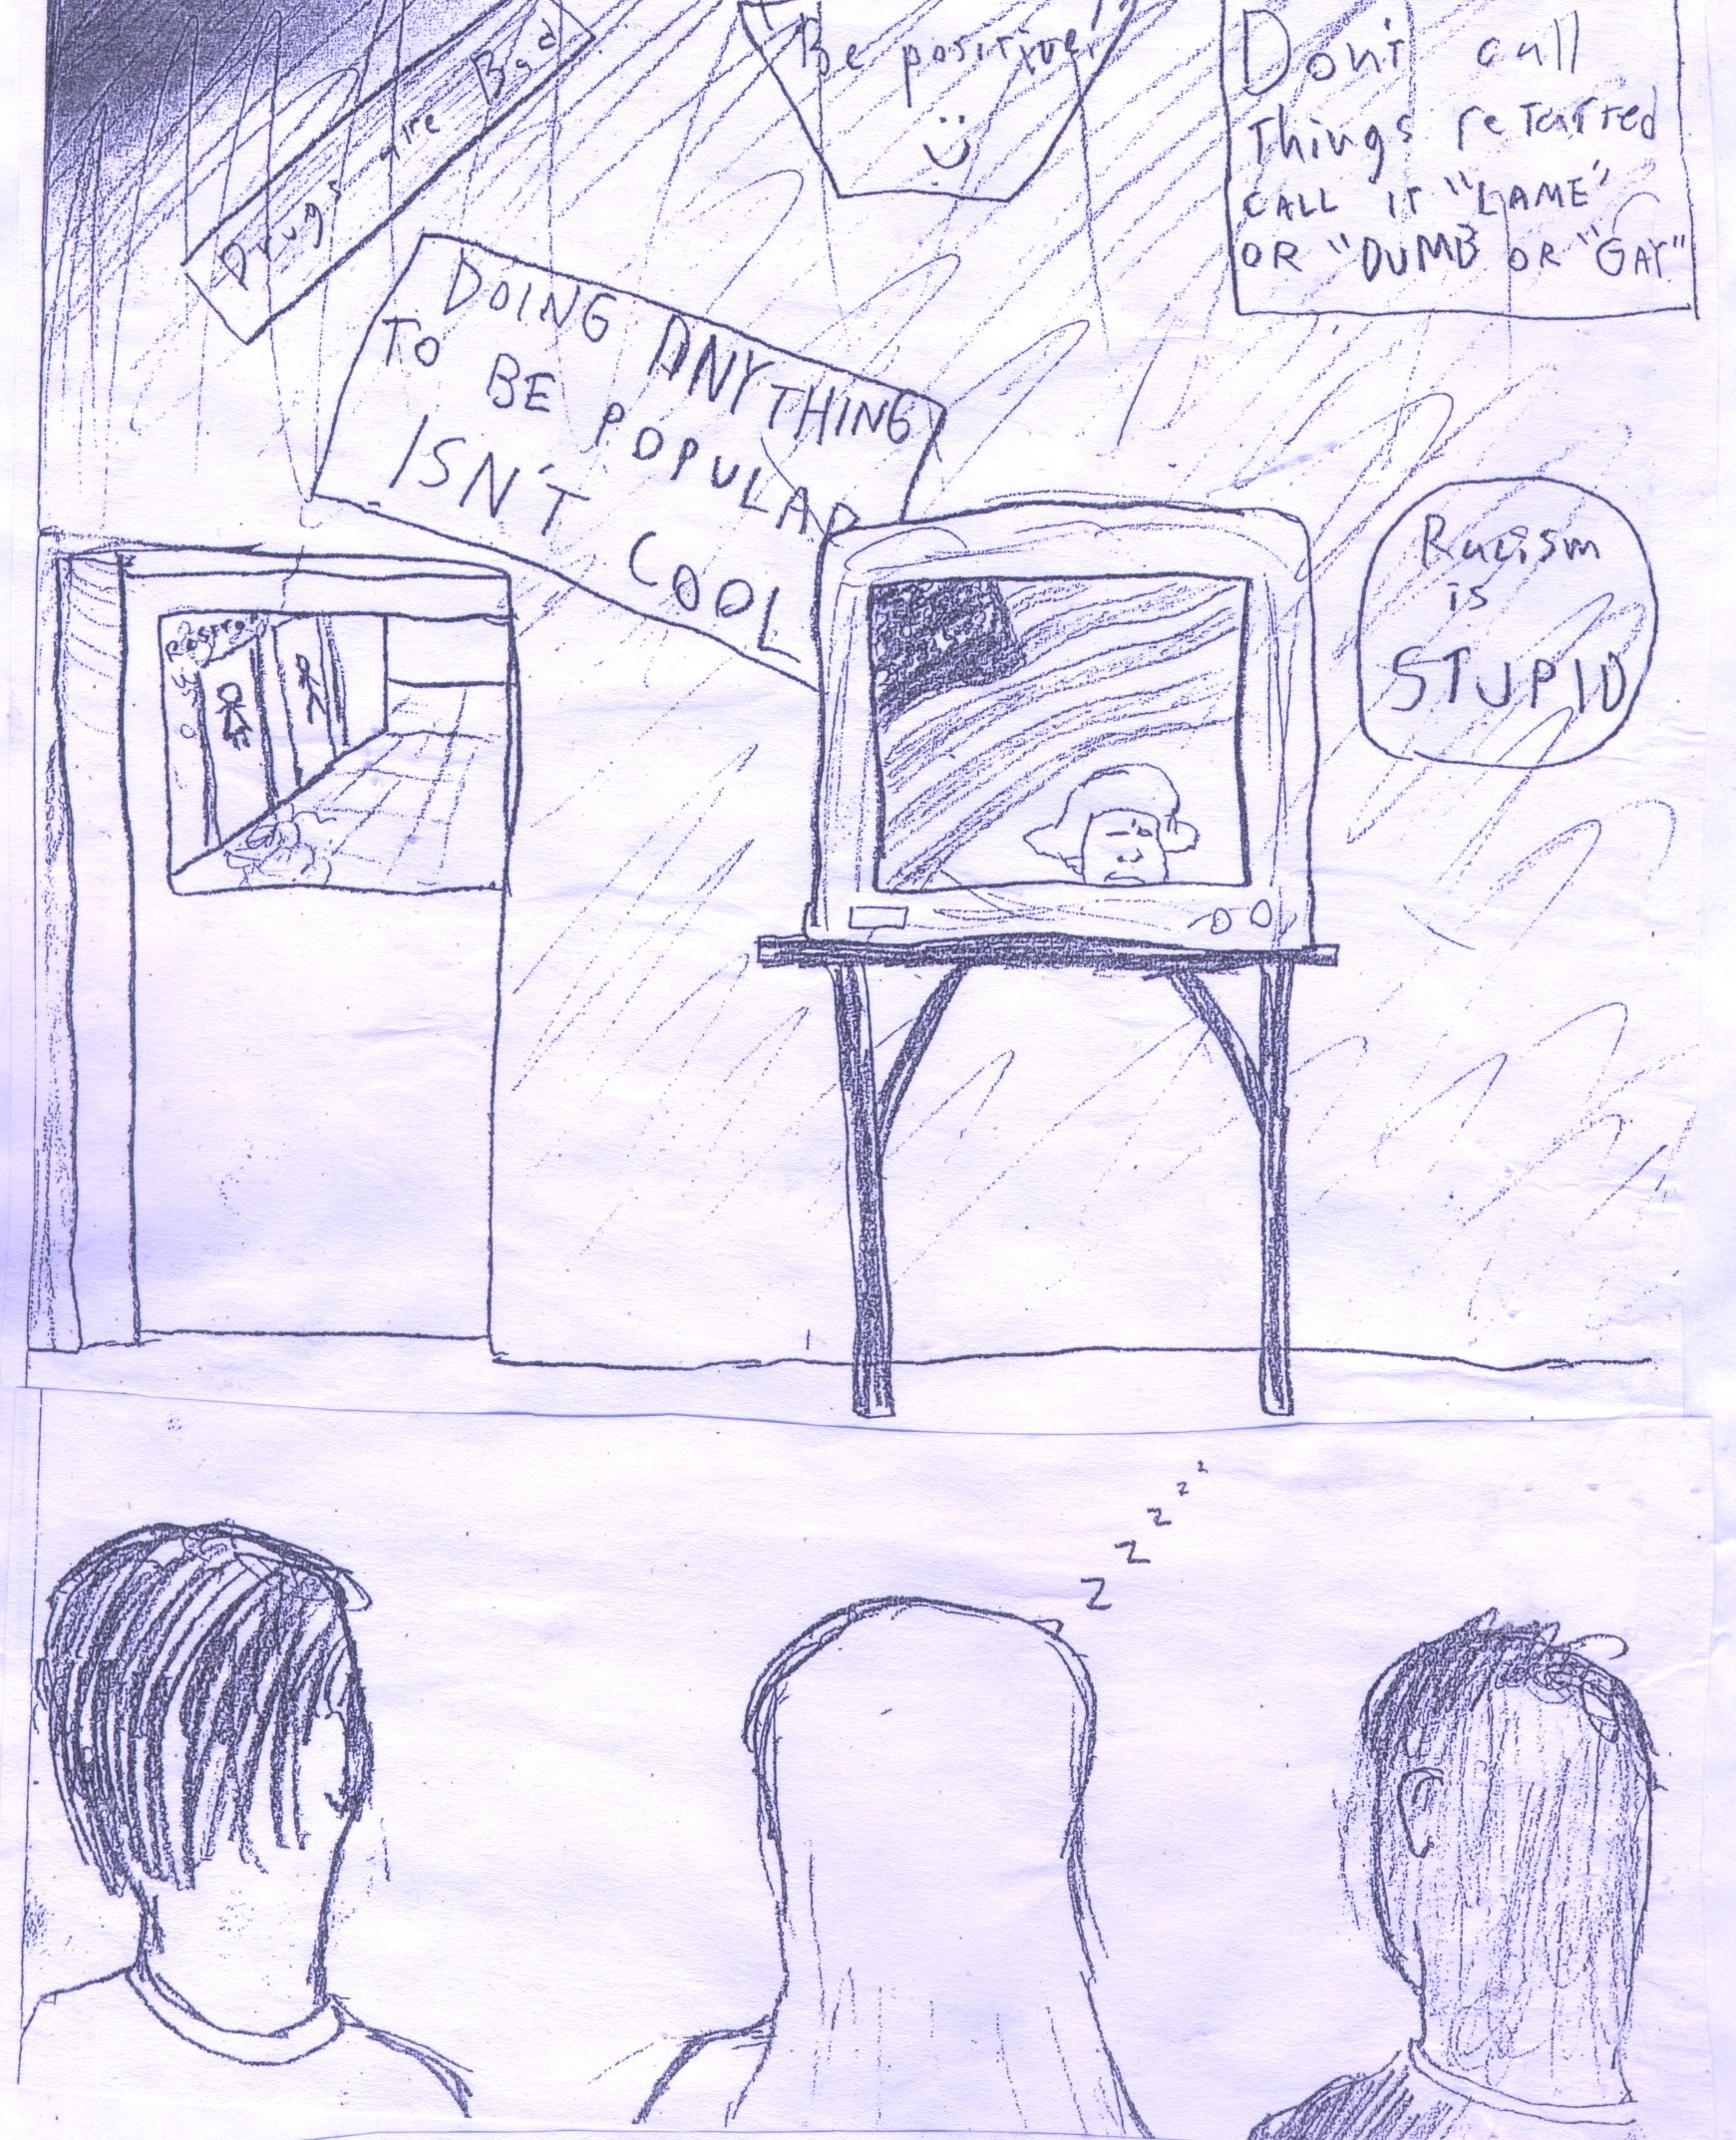 Drugs are Bad
Be positive!
Don't call
Things retarred
CALL IT "LAME"
OR "DUMB OR "GAY"
DOING ANYTHING
TO BE POPULAR
ISN'T COOL
Racism
is
STUPID
z z z z z